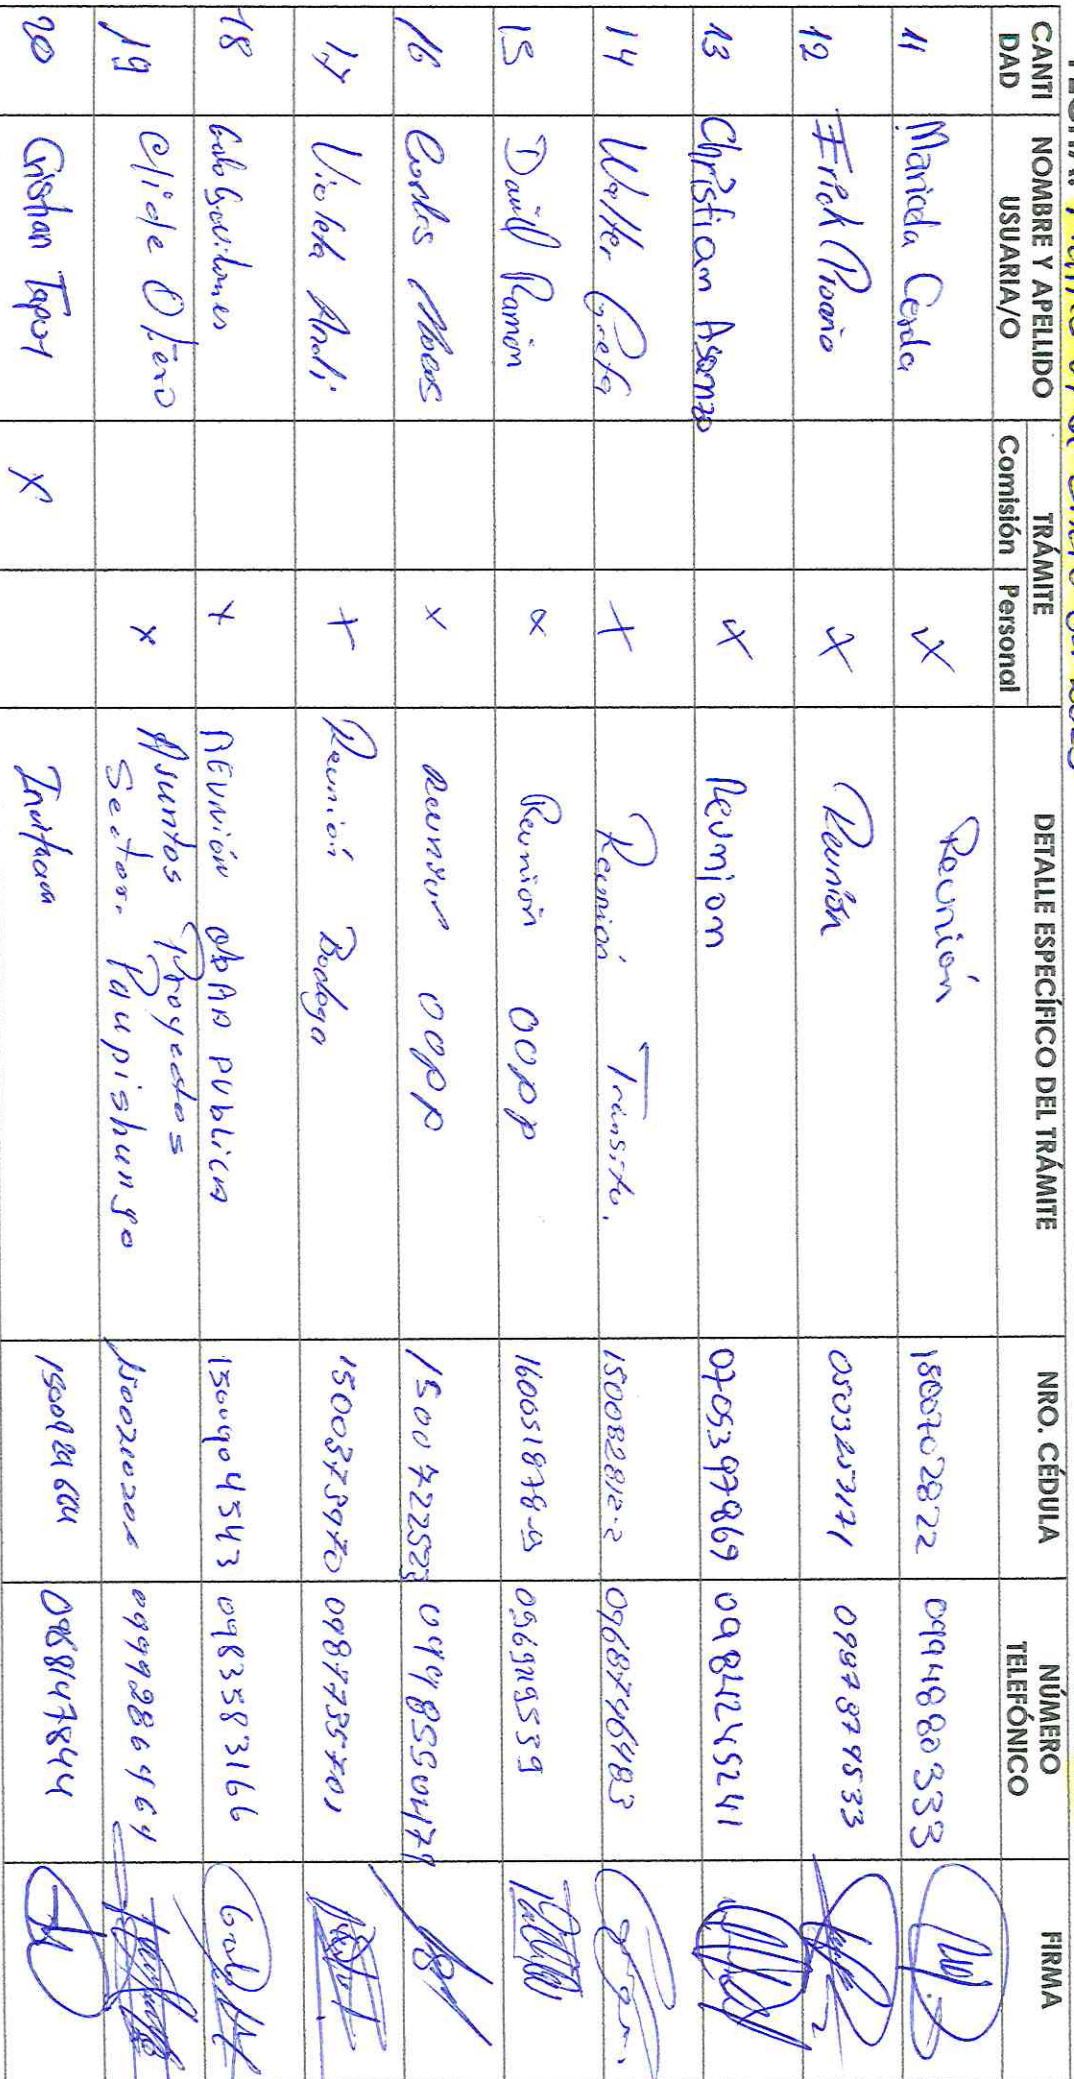 CANTIDAD NOMBRE Y APELLIDO USUARIA/O TRÁMITE Comisión Personal DETALLE ESPECÍFICO DEL TRÁMITE NRO. CÉDULA NÚMERO TELEFÓNICO FIRMA
11 Maricela Cerda X Reunión 1500702822 0994880333
12 Erick Proaño X Reunión 0503257171 0987879533
13 Christian Asanza X Reunion 0705397869 0984245241
14 Walter X Reunión Tránsito. 150082812-2 0968746483
15 David Ramón X Reunión OOPP
16 Carlos X Reunion OOPP 1500722523
17 Violeta Andi X Reunión Bodega
18 Galo Gavilanes X REUNIÓN OBRA PUBLICA 1500404543 0983583166
19 Elide Otero X Asuntos Proyectos
Sector. Paupishungo 0999286464
20 Cristian Tapuy X 0968147844